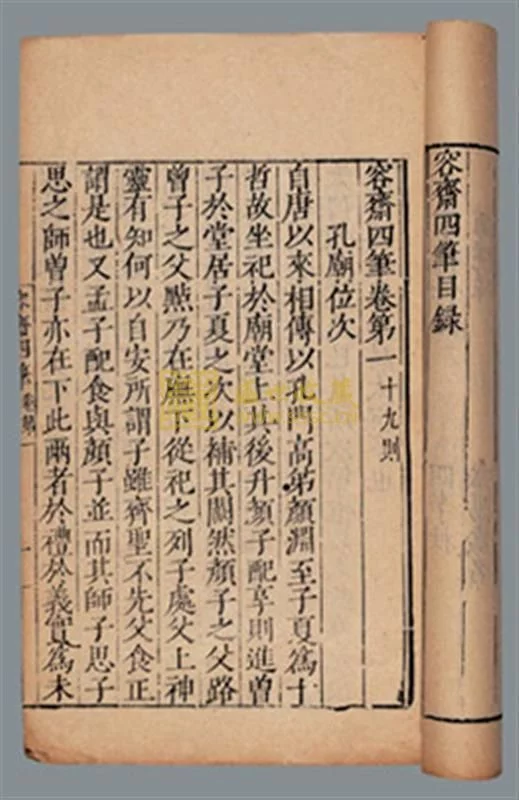 容齋四筆目錄
容齋四筆卷第一 十九則
孔廟位次
自唐以來相傳以孔門高弟顏淵至子夏爲十
哲故坐祀於廟堂上其後升顏子配享則進曾
子於堂居子夏之次以補其闕然顏子之父路
曾子之父點乃在廡下從祀之列子處父上神
靈有知何以自安所謂子雖齊聖不先父食正
謂是也又孟子配食與顏子並而其師子思子
思之師曾子亦在下此兩者於禮於義實爲未